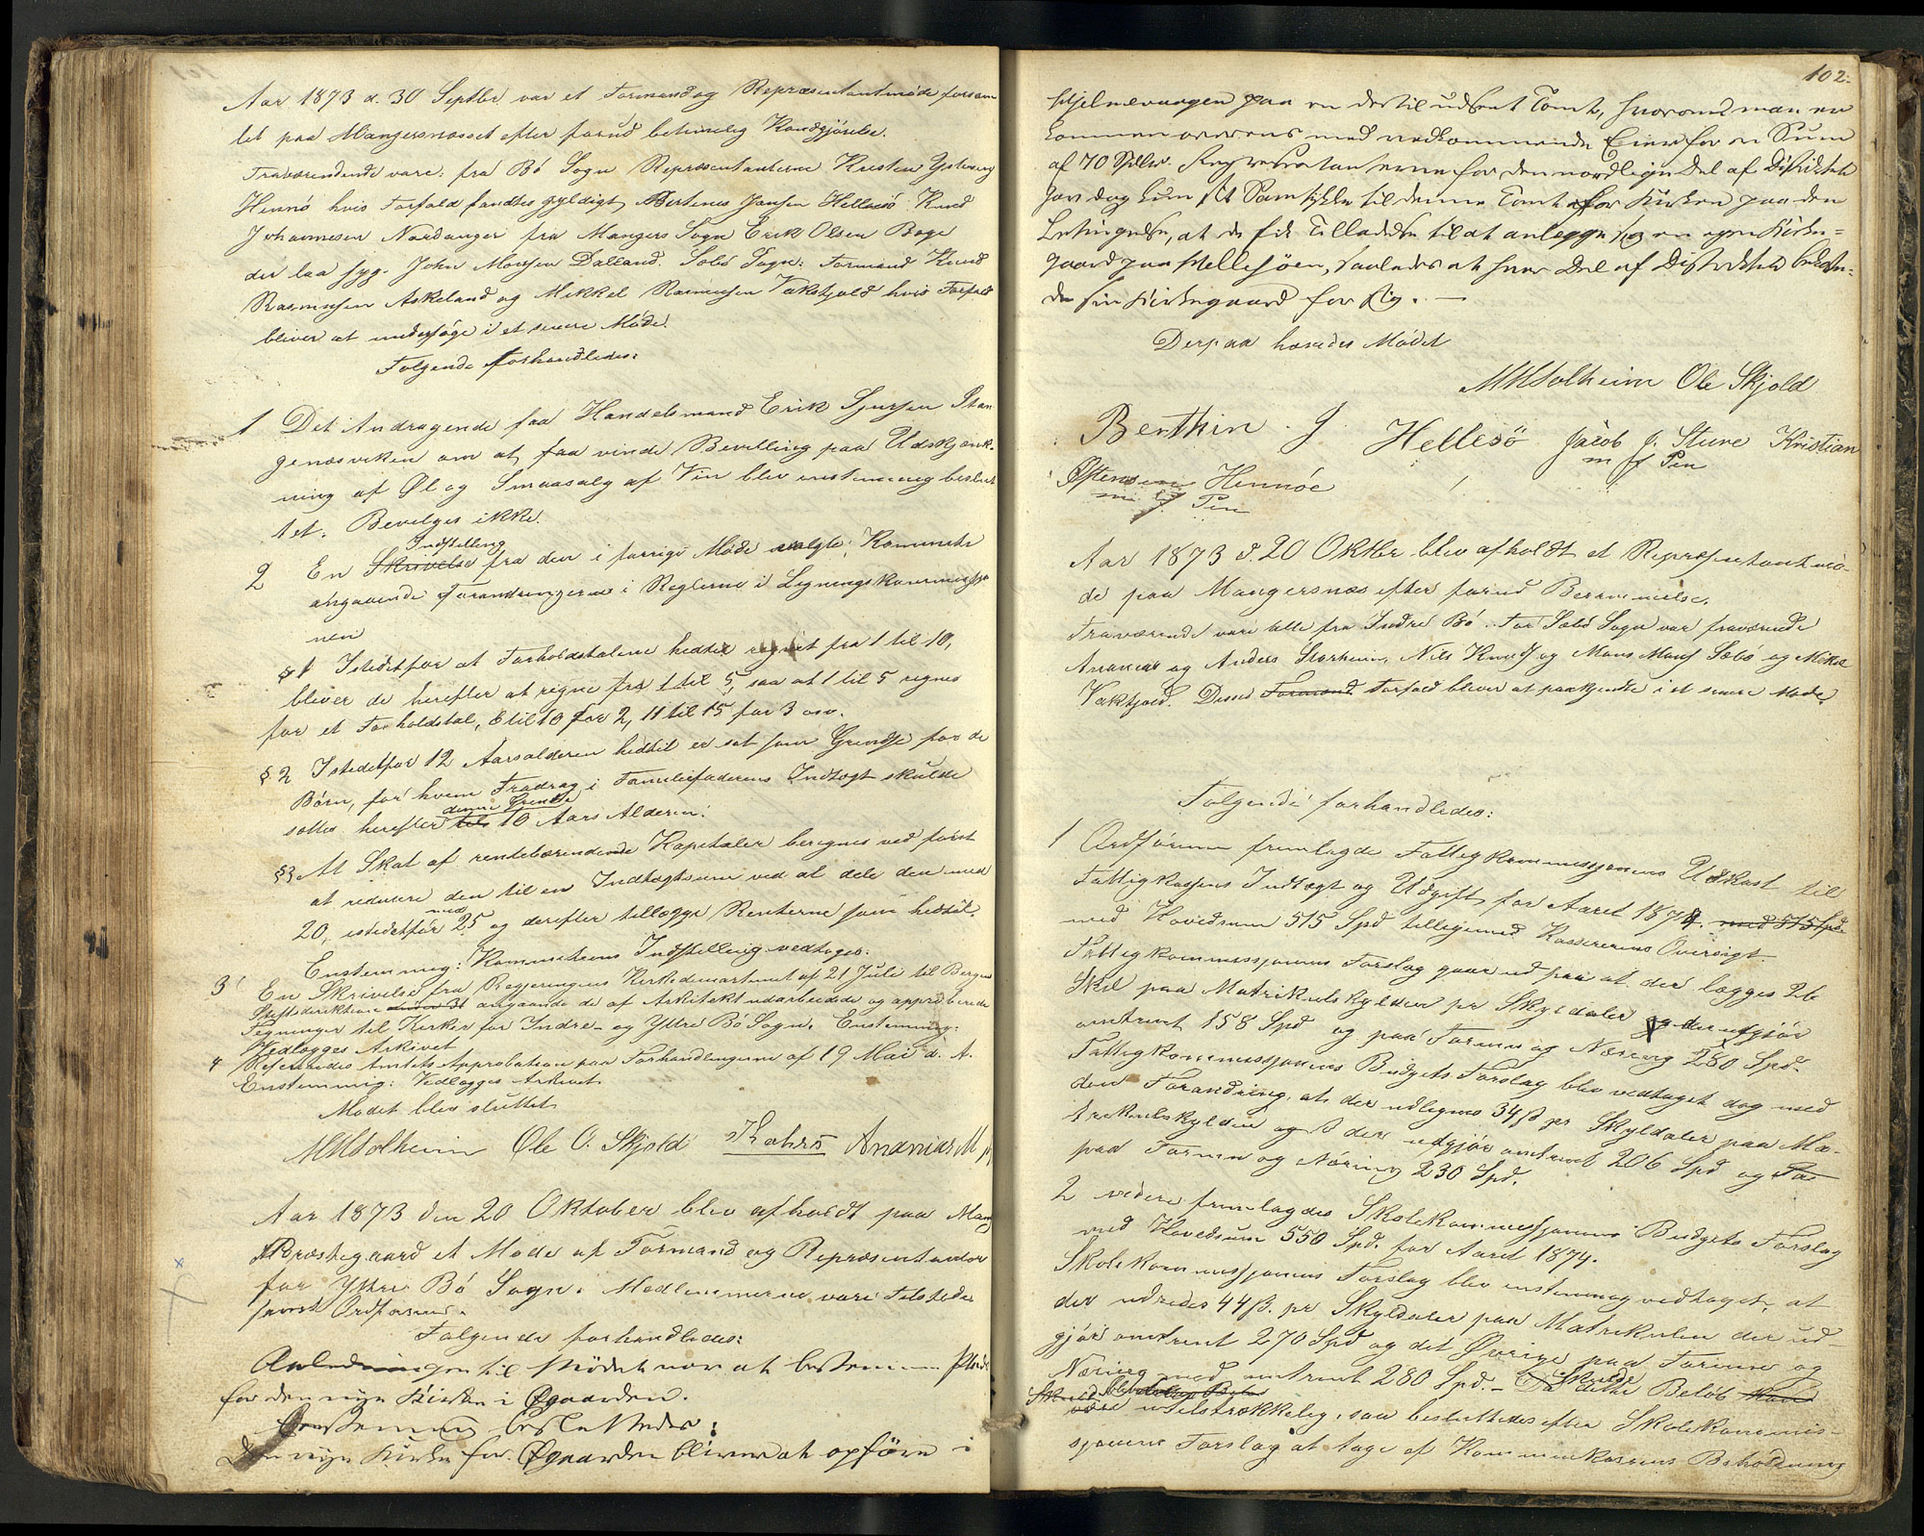 Aar 1873 d. 30 Septbr var et Formand og Repræsentantmøde forsam
let paa Mangersnæsset efter forud betimelig Kundgjørelse.
Fraværendende vare: fra Bø Sogn Repræsentanterne Kristen
Hennø hvis Forfald fandtes gyldigt, Bertinus Jansen Hellesø Knud
Johannesen Nordanger fra Mangers Sogn Erik Olsen Boge
der laa syg. John Monsen Dalland. Sæbø Sogn: Formand Knud
Rasmussen Askeland og Mikkel Rasmussen Vakskjold hvis Forfald
bliver at undersøge i et senere Møde.
Følgende forhandledes:
1 Det Andragende fra Handelsmand Erik Sjursen Stan
genæsviken om at faa vinde Bevilling paa Udskjænk-
ning af Øl og Smaasalg af Vin blev enstemmeg beslut
tet: Bevelges ikke.
Indstilling
2 En Skrivelse fra den i forrige Møde valgte Kommite
angaaende Forandringerne i Reglerne i Legningskommissjo
nen
§ 1 Istedetfor at Forholdstalene hedtil regnet fra 1 til 10,
bliver de herefter at regne fra 1 til 5, saa at 1 til 5 regnes
for et Forholdstal, 6 til 10 for 2, 11 til 15 for 3 osv.
§ 2 Istedetfor 12 Aarsalderen hedtil er sat som Grendse for de
Børn, for hvem Fradrag i Familiefaderens Indtægt skulde
denne Grendse
sættes herefter til 10 Aars Alderen.
§ 3 At Skat af rentebærendende Kapitaler beregnes ved først
at redusere den til en Indtægtsum ved at dele den med
med
20, istedetfor 25 og derefter tillægge Renterne som hedtil.
Enstemmig: Kommiteens Indstilling vedtages.
3 En Skrivelse fra Regjeringens Kirkedepartemet af 21 Juli til Bergens
Stiftsdirektion angaaende de af Arkitekt udarbeidede og approberede
Tegninger til Kirker for Indre- og Yttre Bø Sogn. Enstemmig:
Vedlægges Arkivet
4 Refereredes Amtets Approbation paa Forhandlingerne af 19 Mai d. A.
Enstemmig: Vedlægges Arkivet.
Mødet blev sluttet
M Solheim Ole O. Skjold Ananias M
Aar 1873 den 20 Oktober blev afholdt paa Mang
Præstegaard et Møde af Formænd og Repræsentanter
for Yttre Bø Sogn. Medlemmerne vare Tilstede
samt Ordføreren.
Følgende forhandledes:
Anledningen til Mødet var at bestemme Plads
for den nye Kirke i Øgaarden.
Enstemmig besluttedes:
Den nye Kirke for Øgaarden bliver at opføre i
102.
Hjelmevaagen paa en dertil udseet Tomt, hvorom man er
kommen overens med vedkommende Eier for en Sum
af 70 Spdlr. Repræsentanterne for den nordligste Del af Distriktet
gav dog kun sit Samtykke til denne Tomt for Kirken paa den
Betingelse, at de fik Tilladelse til at anlegge sig en egen Kirke-
gaard paa Hellesøen, saaledes at hver Del af Distriktet bekoste-
de sin Kirkegaard for sig.
Derpaa hævedes Mødet
M Solheim Ole Skjold
Berthin J Hellesø Jacob J. Sture Kristian
m f Pen
Østensen Hennøe
m f Pen
Aar 1873 d. 20 Oktbr blev afholdt et Repræsentantmø-
de paa Mangersnæs efter forud Berammelse.
Fraværende vare alle fra Indre Bø. For Sæbø Sogn var fraværende
Ananias og Anders Storheim, Nils Knudss og Mons Monss Sæbø og Mikkel
Vakskjold. Disses Formand Forfald bliver at paakjende i et senere Møde.
Følgende forhandledes:
1 Ordføreren fremlagde Fattigkommissjonens Udkast til
Fattigkassens Indtægt og Udgift for Aaret 1874. med 515 Spd.
med Hovedsum 515 Spd tilligemed Kassererens Oversigt.
Fattigkommissjonens Forslag gaar ud paa at der lægges 26
Skil paa Matrikulskylden pr Skyldaler og der udgjør
omtrent 158 Spd og paa Formue og Næring 280 Spd.
Fattigkommissjonens Budgets Forslag blev vedtaget dog med
den Forandring, at der udlignes 34 ß pr Skyldaler paa Ma-
trikulskylden og der udgjør omtrent 206 Spd og Paa
paa Formue og Næring 230 Spd.
2 videre fremlagdes Skolekommissjonens Budgets Forslag
med Hovedsum 550 Spd. for Aaret 1874.
Skolekommissjonens Forslag blev enstemmeg vedtaget, at
der udredes 44 ß. pr Skyldaler paa Matrikulen der ud-
gjør omtrent 270 Spd og det Øvrige paa Formue og
Næring med omtrent 280 Spd. – Da dette Beløb
skulde
være utilstrækkelig, saa besluttedes efter Skolekommis-
sjonens Forslag at tage af Kommunekassens Beholdning